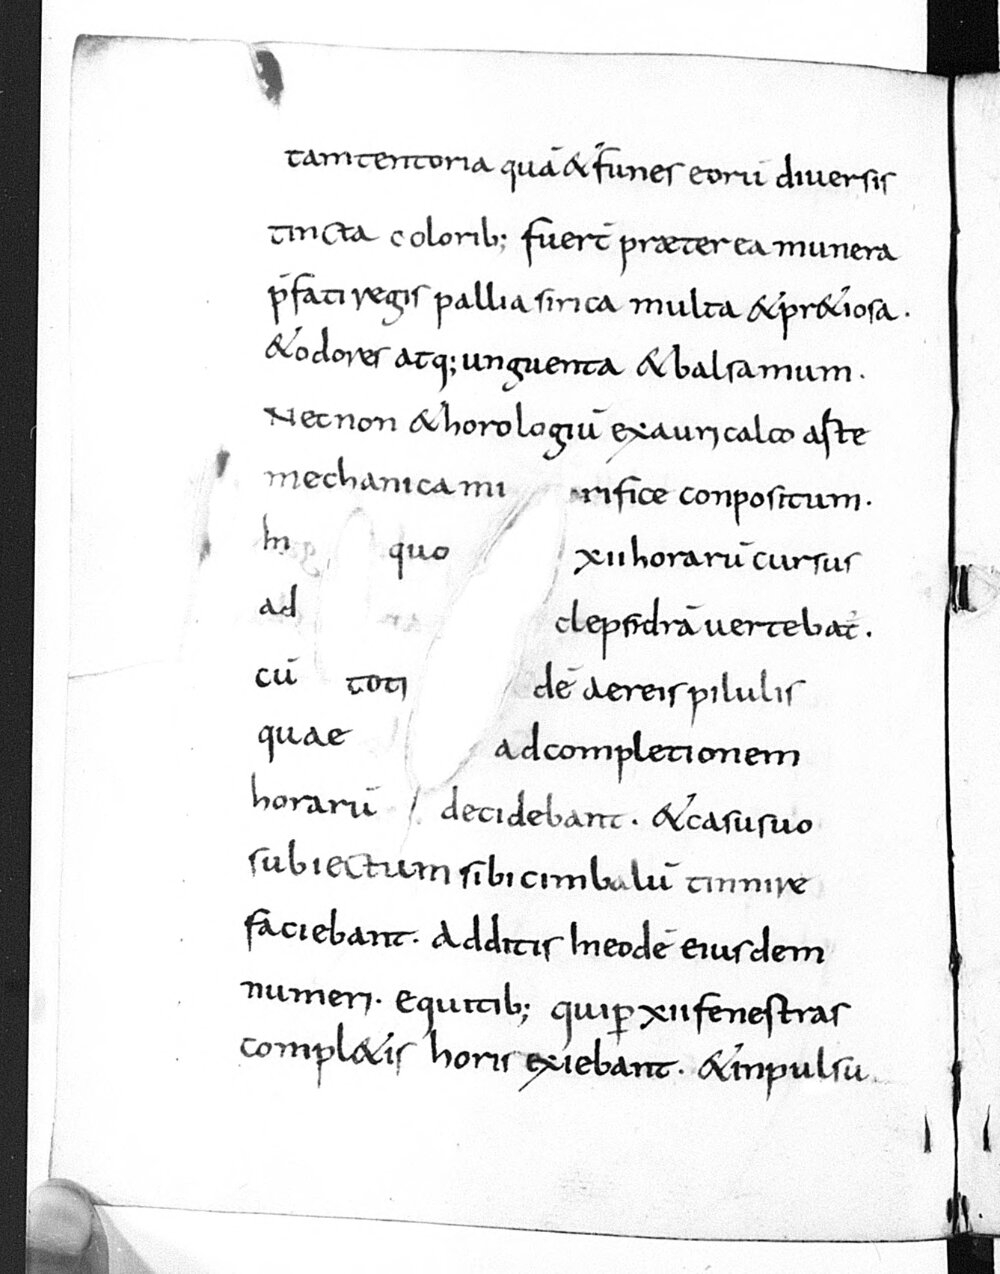 tam tentoria quā & funes eorū diuersis
tincta colorib; fuerт̄ præter ea munera
p̄fati regis pallia sirica multa & pr&iosa.
& odores atq; unguenta & balsamum.
Necnon & horologiū ex auricalco aste
mechanica mi rifice conpositum.
In quo xii horarū cursus
ad clepsidrā uertebat.
cū toti dē aereis pilulis
quae ad completionem
horarū decidebant. & casu suo
subiectum sibi cimbalū tinnire
faciebant. Additis In eodē eiusdem
numeri. equitib; qui ꝑ xii fenestras
compl&is horis exiebant. & inpulsu